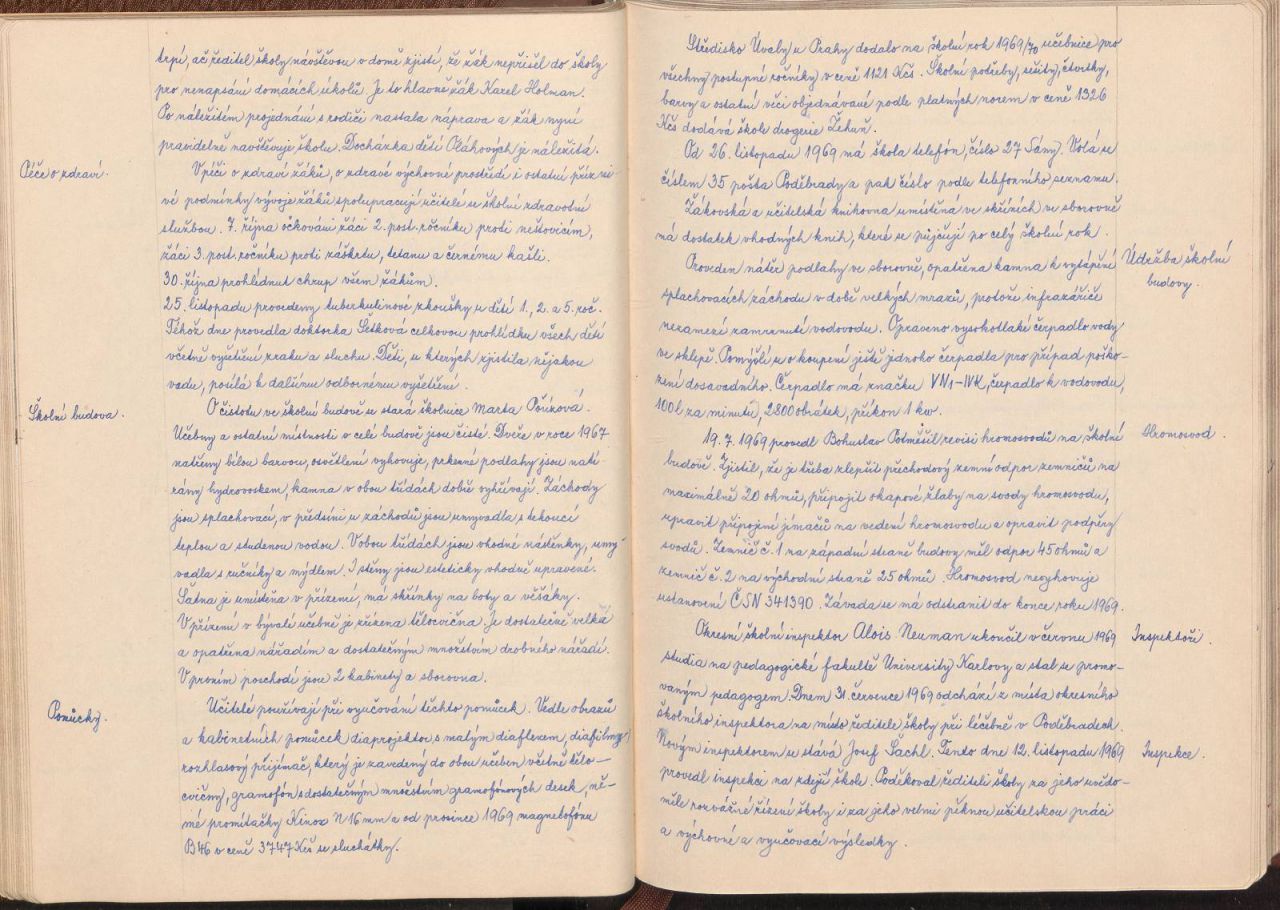 trpí, ač ředitel školy návštěvou v domě zjistí, že žák nepřišel do školy
pro nenapsání domácích úkolů. Je to hlavně žák Karel Holman.
Po náležitém projednání s rodiči nastala náprava a žák nyní
pravidelně navštěvuje školu. Docházka dětí Oláhových je náležitá.
Péče o zdraví.
V péči o zdraví žáků, o zdravé výchovné prostředí i ostatní přízni-
vé podmínky vývoje žáků spolupracují učitelé se školní zdravotní
službou. 7. října očkováni žáci 2. post. ročníku proti neštovicím,
žáci 3. post. ročníku proti záškrtu, tetanu a černému kašli.
30. října prohlédnut chrup všem žákům.
25. listopadu provedeny tuberkulinové zkoušky u dětí 1., 2. a 5. roč.
Téhož dne provedla doktorka Sětková celkovou prohlídku všech dětí
včetně vyšetření zraku a sluchu. Děti, u kterých zjistila nějakou
vadu, posílá k dalšímu odbornému vyšetření.
Školní budova.
O čistotu ve školní budově se stará školnice Marta Pořízová.
Učebny a ostatní místnosti v celé budově jsou čisté. Dveře v roce 1967
natřeny bílou barvou, osvětlení vyhovuje, prkenné podlahy jsou natí-
rány hydrovoskem, kamna v obou třídách dobře vyhřívají. Záchody
jsou splachovací, v předsíni u záchodů jsou umyvadla s tekoucí
teplou a studenou vodou. V obou třídách jsou vhodné nástěnky, umy-
vadla s ručníky a mýdlem. I stěny jsou esteticky vhodně upravené.
Šatna je umístěna v přízemí, má skřínky na boty a věšáky.
V přízemí v bývalé učebně je zřízena tělocvična. Je dostatečně velká
a opatřena nářadím a dostatečným množstvím drobného nářadí.
V prvním poschodí jsou 2 kabinety a sborovna.
Pomůcky.
Učitelé používají při vyučování těchto pomůcek. Vedle obrazů
a kabinetních pomůcek diaprojektor s malým diaflexem, diafilmy,
rozhlasový přijímač, který je zavedený do obou učeben včetně tělo-
cvičny, gramofón s dostatečným množstvím gramofónových desek, ně-
mé promítačky Kinox N 16 mm a od prosince 1969 magnetofónu
B46 v ceně 3747 Kčs se sluchátky.
Středisko Úvaly u Prahy dodalo na školní rok 1969/70 učebnice pro
všechny postupné ročníky v ceně 1121 Kčs. Školní potřeby, sešity, čtvrtky,
barvy a ostatní věci objednávané podle platných norem v ceně 1326
Kčs dodává škole drogerie Žehuň.
Od 26. listopadu 1969 má škola telefón, číslo 27 Sány. Volá se
číslem 35 pošta Poděbrady a pak číslo podle telefonního seznamu.
Žákovská a učitelská knihovna umístěná ve skříních ve sborovně
má dostatek vhodných knih, které se půjčují po celý školní rok.
Údržba školní
budovy.
Proveden nátěr podlahy ve sborovně, opatřena kamna k vytápění
splachovacích záchodů v době velkých mrazů, protože infrazářiče
nezamezí zamrznutí vodovodu. Opraveno vysokotlaké čerpadlo vody
ve sklepě. Pomýšlí se o koupení ještě jednoho čerpadla pro případ poško-
zení dosavadního. Čerpadlo má značku VN1-IVK, čerpadlo k vodovodu,
100 l za minutu, 2800 obrátek, příkon 1 kw.
Hromosvod.
19. 7. 1969 provedl Bohuslav Potměšil revisi hromosvodů na školní
budově. Zjistil, že je třeba zlepšit přechodový zemní odpor zemničů na
maximálně 20 ohmů, připojit okapové žlaby na svody hromosvodu,
upravit připojení jímačů na vedení hromosvodu a opravit podpěry
svodů. Zemnič č. 1 na západní straně budovy měl odpor 45 ohmů a
zemnič č. 2 na východní straně 25 ohmů. Hromosvod nevyhovuje
ustanovení ČSN 341390. Závada se má odstranit do konce roku 1969.
Inspektoři.
Okresní školní inspektor Alois Neuman ukončil v červnu 1969
studia na pedagogické fakultě University Karlovy a stal se promo-
vaným pedagogem. Dnem 31. července 1969 odchází z místa okresního
školního inspektora na místo ředitele školy při léčebně v Poděbradech.
Inspekce.
Novým inspektorem se stává Josef Šachl. Tento dne 12. listopadu 1969
provedl inspekci na zdejší škole. Poděkoval řediteli školy za jeho uvědo-
mělé rozvážné řízení školy i za jeho velmi pěknou učitelskou práci
a výchovné a vyučovací výsledky.